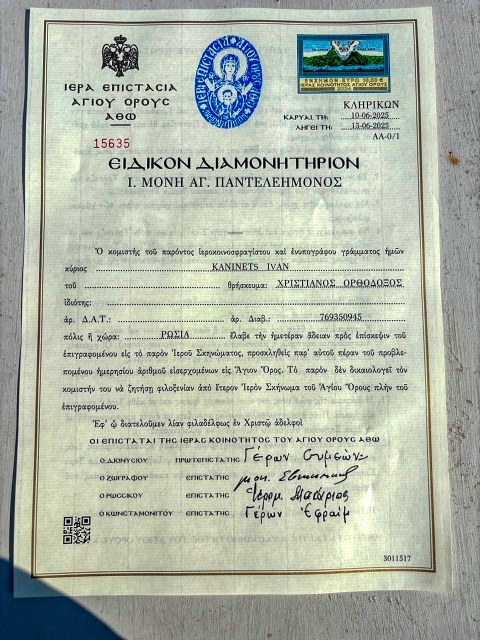 ΙΕΡΑ ΕΠΙΣΤΑΣΙΑ
ΑΓΙΟΥ ΟΡΟΥΣ
ΑΘΩ
ΕΝΣΗΜΟΝ ΕΥΡΩ 10,00 €
ΙΕΡΑΣ ΚΟΙΝΟΤΗΤΟΣ ΑΓΙΟΥ ΟΡΟΥΣ
ΚΛΗΡΙΚΩΝ
ΚΑΡΥΑΙ ΤΗ: 10-06-2025
ΛΗΓΕΙ ΤΗ: 13-06-2025
ΑΑ-0/1
15635
ΕΙΔΙΚΟΝ ΔΙΑΜΟΝΗΤΗΡΙΟΝ
Ι. ΜΟΝΗ ΑΓ. ΠΑΝΤΕΛΕΗΜΟΝΟΣ
Ὁ κομιστής τοῦ παρόντος ἱεροκοινοσφραγίστου καί ἐνυπογράφου γράμματος ἡμῶν
κύριος KANINETS IVAN
τοῦ θρήσκευμα: ΧΡΙΣΤΙΑΝΟΣ ΟΡΘΟΔΟΞΟΣ
ἰδιότης:
ἀρ. Δ.Α.Τ.: ἀρ. Διαβ.: 769350945
πόλις ἤ χώρα: ΡΩΣΙΑ ἔλαβε τήν ἡμετέραν ἄδειαν πρός ἐπίσκεψιν τοῦ
ἐπιγραφομένου εἰς τό παρόν Ἱεροῦ Σκηνώματος, προσκληθείς παρ' αὐτοῦ πέραν τοῦ προβλε-
πομένου ἡμερησίου ἀριθμοῦ εἰσερχομένων εἰς Ἅγιον Ὄρος. Τό παρόν δέν δικαιολογεῖ τόν
κομιστήν του νά ζητήσῃ φιλοξενίαν ἀπό ἕτερον Ἱερόν Σκήνωμα τοῦ Ἁγίου Ὄρους πλήν τοῦ
ἐπιγραφομένου.
Ἐφ' ᾧ διατελοῦμεν λίαν φιλαδέλφως ἐν Χριστῷ ἀδελφοί
ΟΙ ΕΠΙΣΤΑΤΑΙ ΤΗΣ ΙΕΡΑΣ ΚΟΙΝΟΤΗΤΟΣ ΤΟΥ ΑΓΙΟΥ ΟΡΟΥΣ ΑΘΩ
Ο ΔΙΟΝΥΣΙΟΥ ΠΡΩΤΕΠΙΣΤΑΤΗΣ Γέρων Συμεών
Ο ΖΩΓΡΑΦΟΥ ΕΠΙΣΤΑΤΗΣ μοπ.
Ο ΡΩΣΣΙΚΟΥ ΕΠΙΣΤΑΤΗΣ Ἱερομ. Μακάριος
Ο ΚΩΝΣΤΑΜΟΝΙΤΟΥ ΕΠΙΣΤΑΤΗΣ Γέρων Ἐφραίμ
3011517